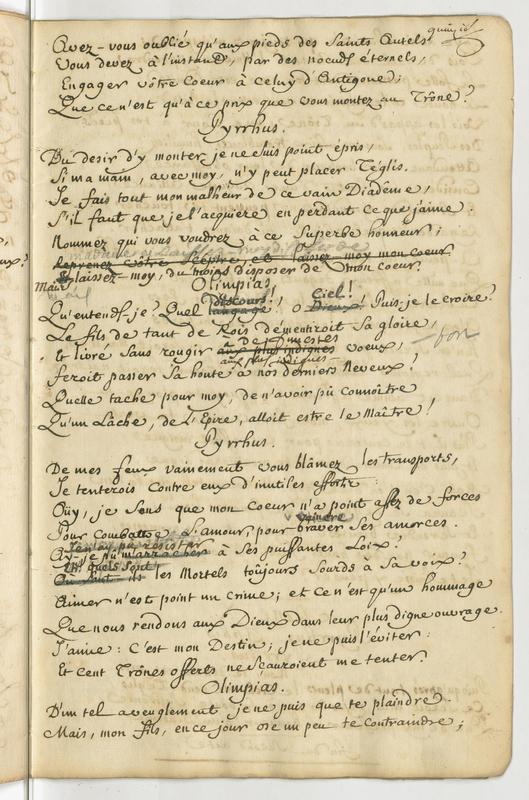 Avez-vous oublié qu'aux pieds des Saints Autels
Vous devez à l'instant, par des noeuds éternels,
Engager vôtre Coeur à celuy d'Antigone;
Que ce n'est qu'à ce prix que vous montez au Trône?
Pyrrhus.
Du desir d'y monter je ne suis point épris,
Si ma main, avec moy, n'y peut placer Téglis.
Je fais tout mon malheur de ce vain Diadême,
S'il faut que je l'acquiere en perdant ce que j'aime.
Nommez qui vous voudrez à ce Superbe honneur;
Reprenez vôtre Sceptre, et laissez-moy mon Coeur
Mais laissez-moy, du moins disposer de mon Coeur.
Olimpias.
discours! Ciel!
Qu'entends-je? Quel langage! O Dieux! Puis-je le croire?
Le fils de tant de Rois démentiroit Sa gloire,
Et livré Sans rougir aux plus indignes voeux,
aux plus indignes
feroit passer Sa honte à nos derniers Neveux?
Quelle tache pour moy, de n'avoir pû connoître
Qu'un Lâche, de l'Epire, alloit estre le Maître!
Pyrrhus.
De mes feux vainement vous blâmez les transports,
Je tenterois contre eux d'inutiles efforts:
Oüy, je Sens que mon Coeur n'a point assez de forces
vaincre
Pour Combattre l'amour, pour braver Ses amorces.
Ay-je pû m'arracher à Ses puissantes Loix?
Et quels sont
Où Sont-ils les Mortels toûjours Sourds à Sa voix?
Aimer n'est point un Crime; et Ce n'est qu'un hommage
Que nous rendons aux Dieux dans leur plus digne ouvrage.
J'aime: C'est mon Destin; je ne puis l'éviter:
Et Cent Trônes offerts ne Sçauroient me tenter.
Olimpias.
D'un tel aveuglement je ne puis que te plaindre.
Mais, mon fils, en ce jour ose un peu te Contraindre;